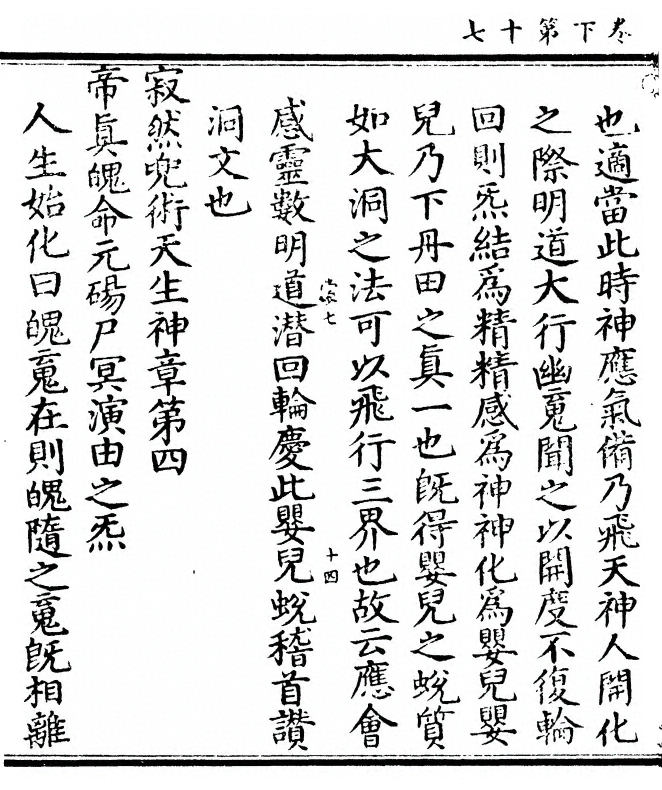 卷下第十七
也適當此時神應氣備乃飛天神人開化
之際明道大行幽䰟聞之以開度不復輪
回則炁結爲精精感爲神神化爲嬰兒嬰
兒乃下丹田之眞一也旣得嬰兒之蛻質
如大洞之法可以飛行三界也故云應會
十四
感靈數明道潜回輪慶此嬰兒蛻稽首讃
洞文也
寂然兜術天生神章第四
帝眞魄命元碭尸冥演由之炁
人生始化曰魄䰟在則魄隨之䰟旣相離